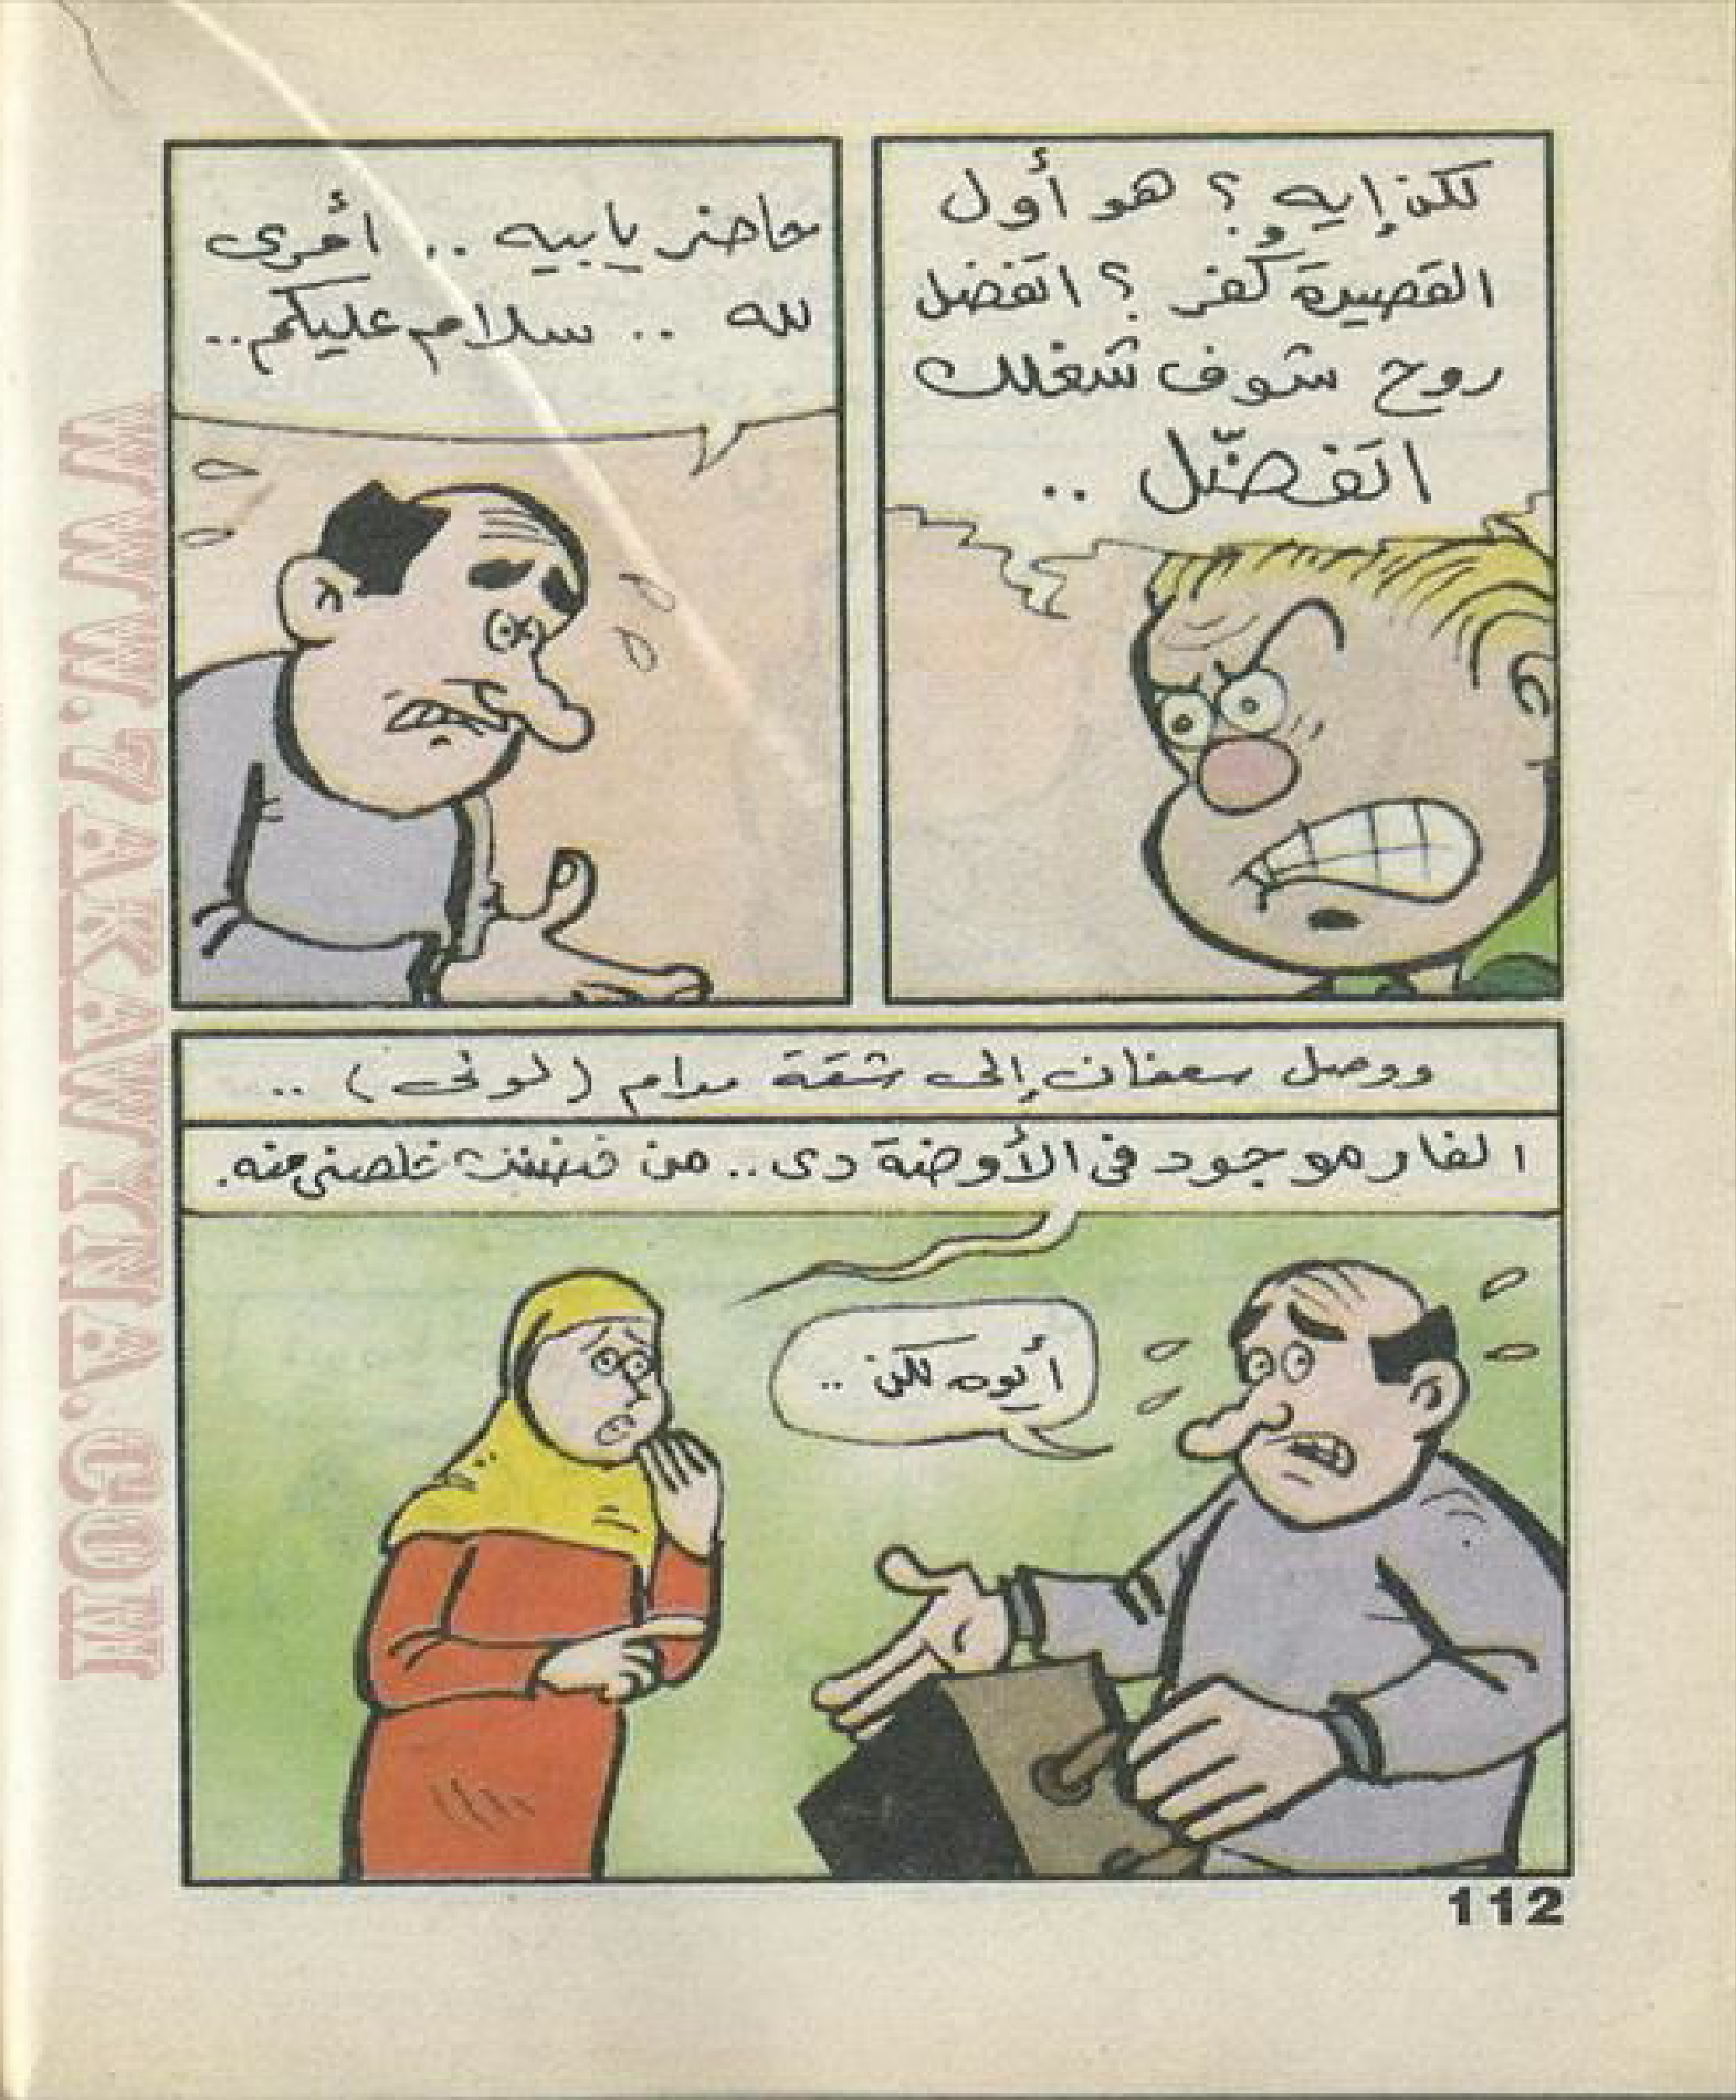 لكن إيه ؟ هو أول
القصيدة كُفر ؟ اتفضل
روح شوف شغلك
اتفضّل ..
حاضر يا بيه .. أمرى
لله .. سلام عليكم ..
ووصل سعفان إلى شقة مدام (لولى) ..
الفار موجود فى الأوضة دى .. من فضلك خلصنى منه.
أيوه لكن ..
112
WWW.7AKAWITNA.COM